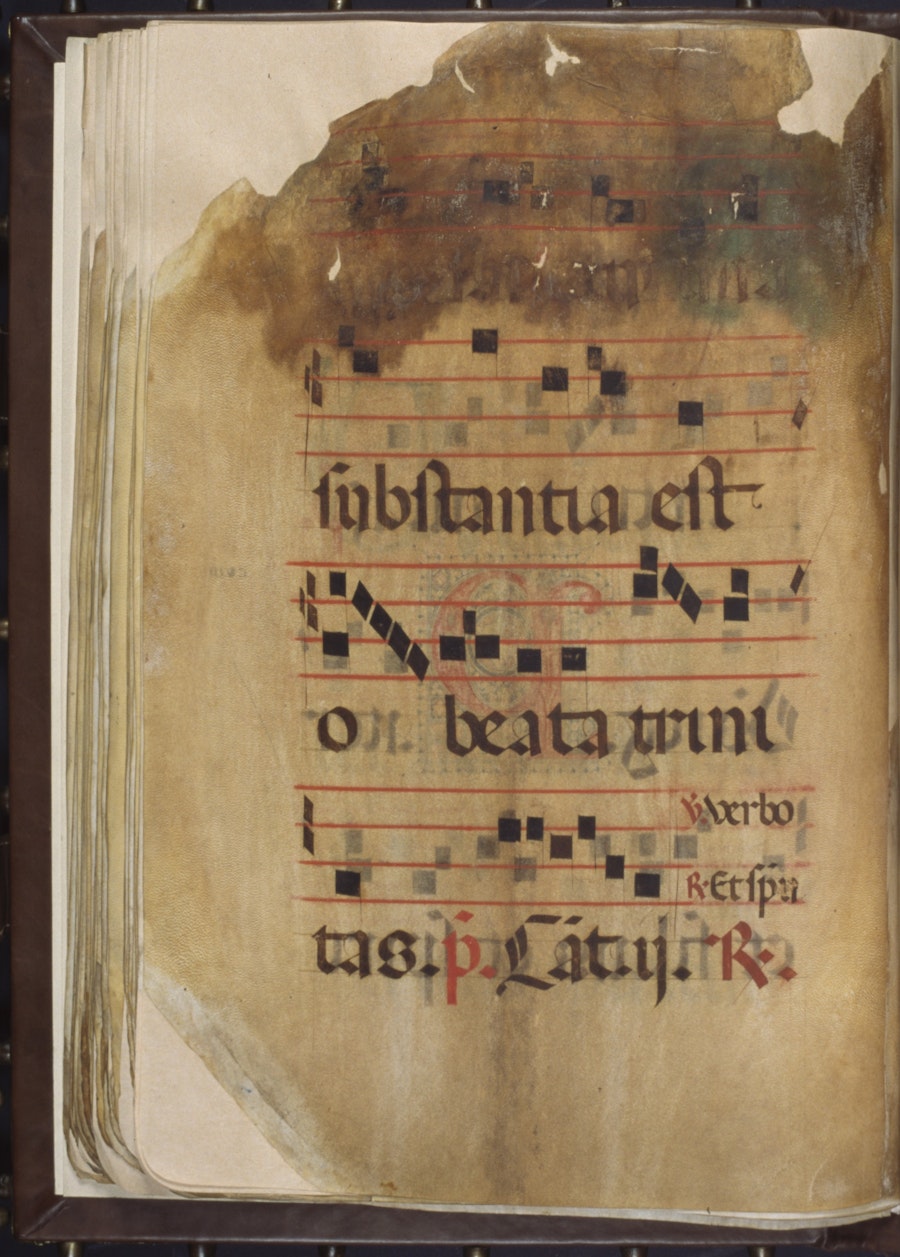 substantia est
o beata trini
℣. verbo
℟. Et spu
tas. p̄. Cāt. ij. ℟.